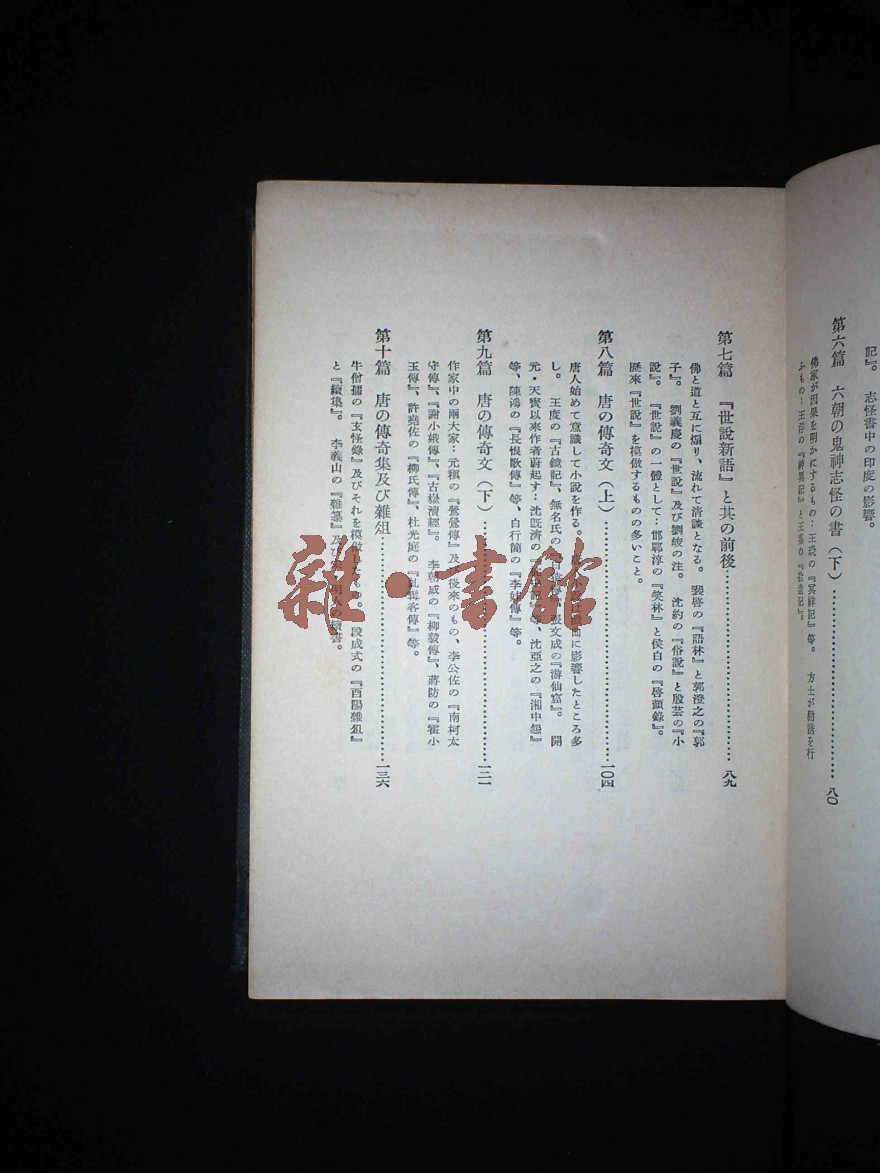 記』。 志怪書中の印度の影響。
第六篇 六朝の鬼神志怪の書（下）……………………八〇
佛家が因果を明かにするもの：王琰の『冥祥記』等。 方士が勸誘を行
ふもの：王浮の『神異記』と王嘉の『拾遺記』。
第七篇 『世說新語』と其の前後……………………八九
佛と道と互に煽り、流れて淸談となる。 裴啓の『語林』と郭澄之の『郭
子』。 劉義慶の『世說』及び劉峻の注。 沈約の『俗說』と殷芸の『小
說』。 『世說』の一體として：邯鄲淳の『笑林』と侯白の『啓顏錄』。
歷來『世說』を模倣するものの多いこと。
第八篇 唐の傳奇文（上）……………………一〇四
唐人始めて意識して小說を作る。 に影響したところ多
し。 王度の『古鏡記』、無名氏の『白 張文成の『游仙窟』。 開
元・天寶以來作者蔚起す：沈旣濟の 等、沈亞之の『湘中怨』
等、陳鴻の『長恨歌傳』等、白行簡の『李娃傳』等。
第九篇 唐の傳奇文（下）……………………一二一
作家中の兩大家：元稹の『鶯鶯傳』及び後來のもの、李公佐の『南柯太
守傳』、『謝小娥傳』、『古嶽瀆經』。 李朝威の『柳毅傳』、蔣防の『霍小
玉傳』、許堯佐の『柳氏傳』、杜光庭の『虬髯客傳』等。
第十篇 唐の傳奇集及び雜俎……………………一三六
牛僧孺の『玄怪錄』及びそれを模倣したもの。 段成式の『酉陽雜俎』
と『續集』。 李義山の『雜纂』及び 書。
雜・書館